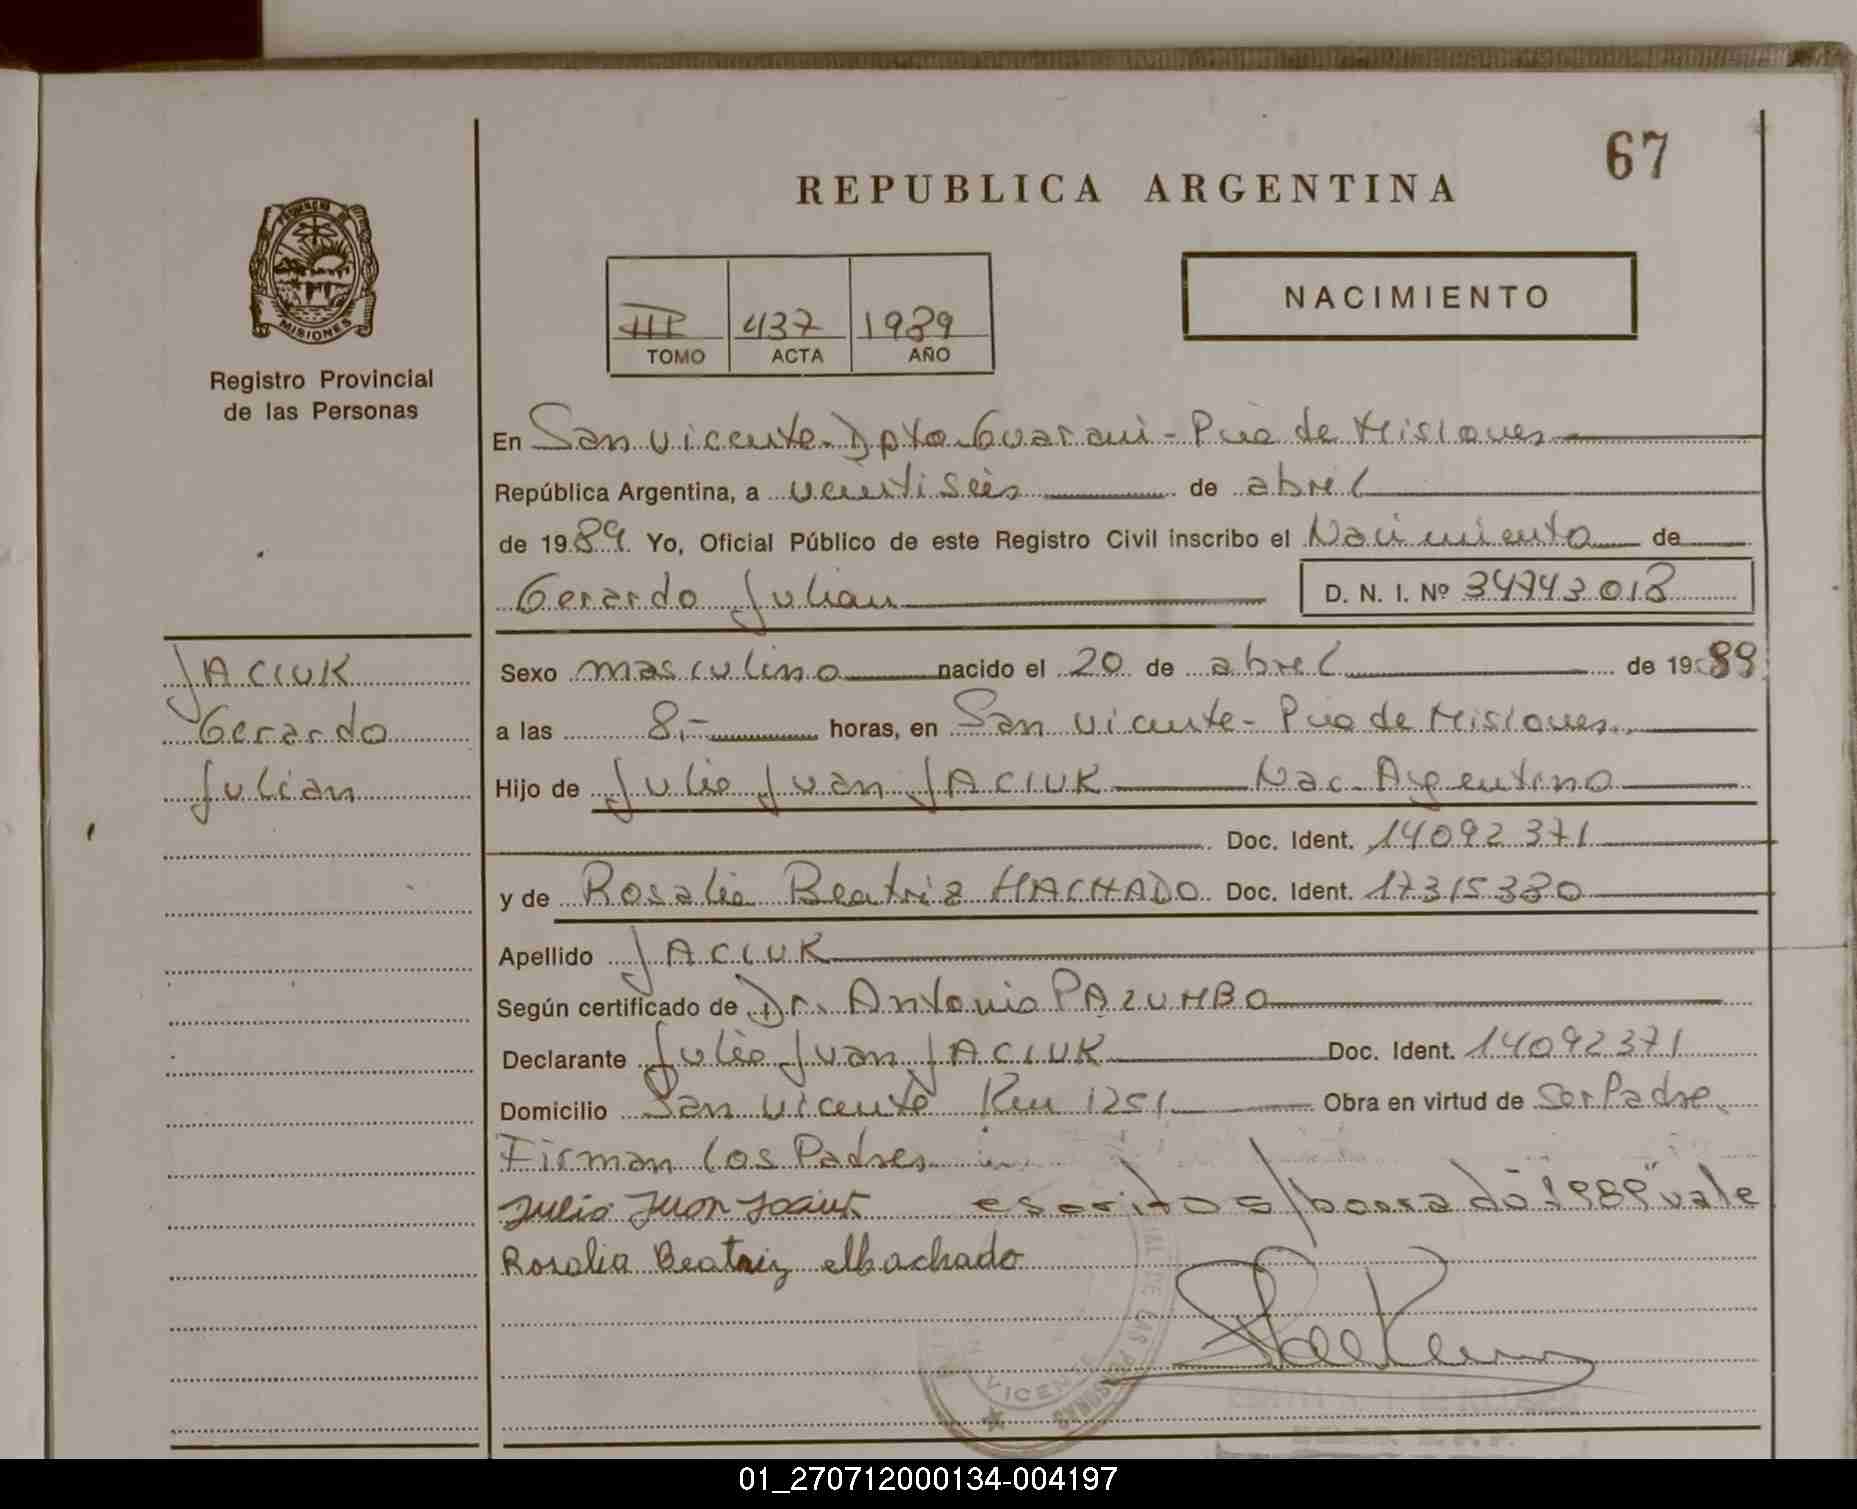 67
REPUBLICA ARGENTINA
PROVINCIA DE
MISIONES
Registro Provincial
de las Personas
III 437 1989
TOMO ACTA AÑO
NACIMIENTO
En San Vicente Dpto Guaraní - Pcia de Misiones
República Argentina, a veintiséis de abril
de 1989 Yo, Oficial Público de este Registro Civil inscribo el Nacimiento de
Gerardo Julian D. N. I. Nº 34743018
JACIUK
Gerardo
Julian
Sexo masculino nacido el 20 de abril de 1989
a las 8,- horas, en San Vicente - Pcia de Misiones
Hijo de Julio Juan JACIUK Nac. Argentino
Doc. Ident. 14092371
y de Rosalia Beatriz MACHADO Doc. Ident. 17315330
Apellido JACIUK
Según certificado de Dr. Antonio PALUMBO
Declarante Julio Juan JACIUK Doc. Ident. 14092371
Domicilio San Vicente Km 1251 Obra en virtud de Ser Padre.
Firman los Padres
Julio Juan Jaciuk escrito s/borrado "1989" vale
Rosalia Beatriz Machado
01_270712000134-004197